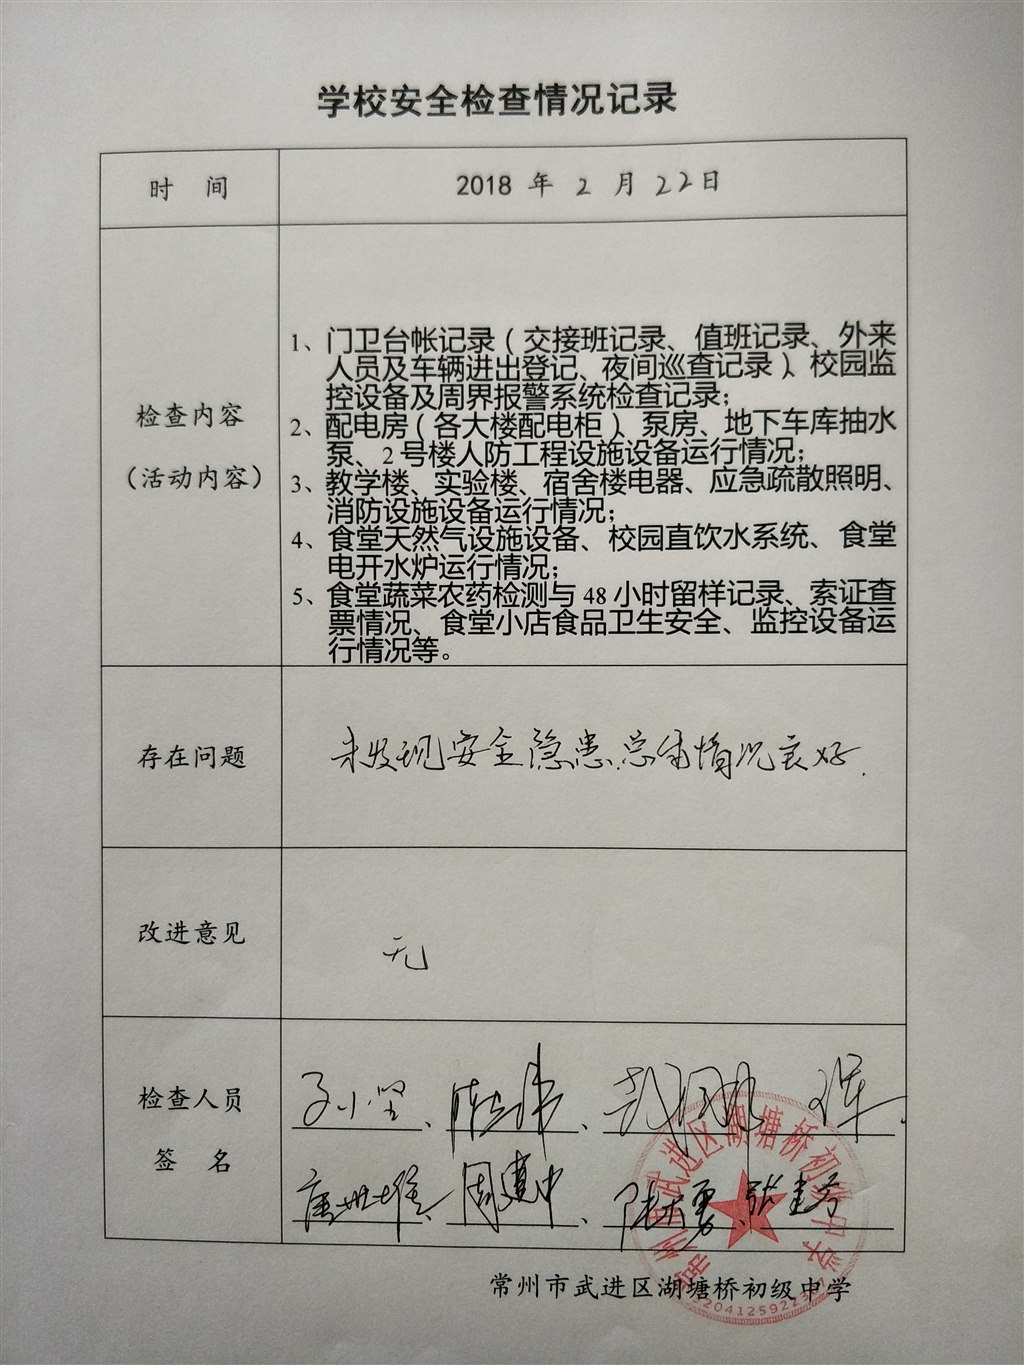 学校安全检查情况记录
时 间
2018 年 2 月 22日
检查内容
（活动内容）
1、门卫台帐记录（交接班记录、值班记录、外来
人员及车辆进出登记、夜间巡查记录）、校园监
控设备及周界报警系统检查记录；
2、配电房（各大楼配电柜）、泵房、地下车库抽水
泵、2 号楼人防工程设施设备运行情况；
3、教学楼、实验楼、宿舍楼电器、应急疏散照明、
消防设施设备运行情况；
4、食堂天然气设施设备、校园直饮水系统、食堂
电开水炉运行情况；
5、食堂蔬菜农药检测与 48 小时留样记录、索证查
票情况、食堂小店食品卫生安全、监控设备运
行情况等。
存在问题
未发现安全隐患.总体情况良好.
改进意见
无
检查人员
签 名
周建中
常州市武进区湖塘桥初级中学
常州市武进区湖塘桥初级中学